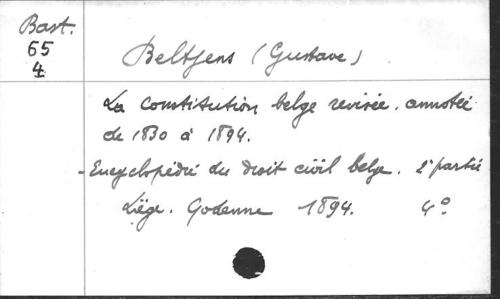 Bast.
65
4
Beltjens (Gustave)
La Constitution belge revisée, annotée
de 1830 à 1894.
- Encyclopédie du droit civil belge. 2e partie
Liège. Godenne 1894. 4°